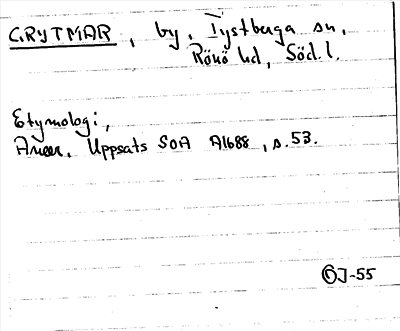 GRYTMAR, by, Tystberga sn,
Rönö hd, Södl.
Etymologi,
Uppsats SOA A1688, s. 53.
ÖJ-55